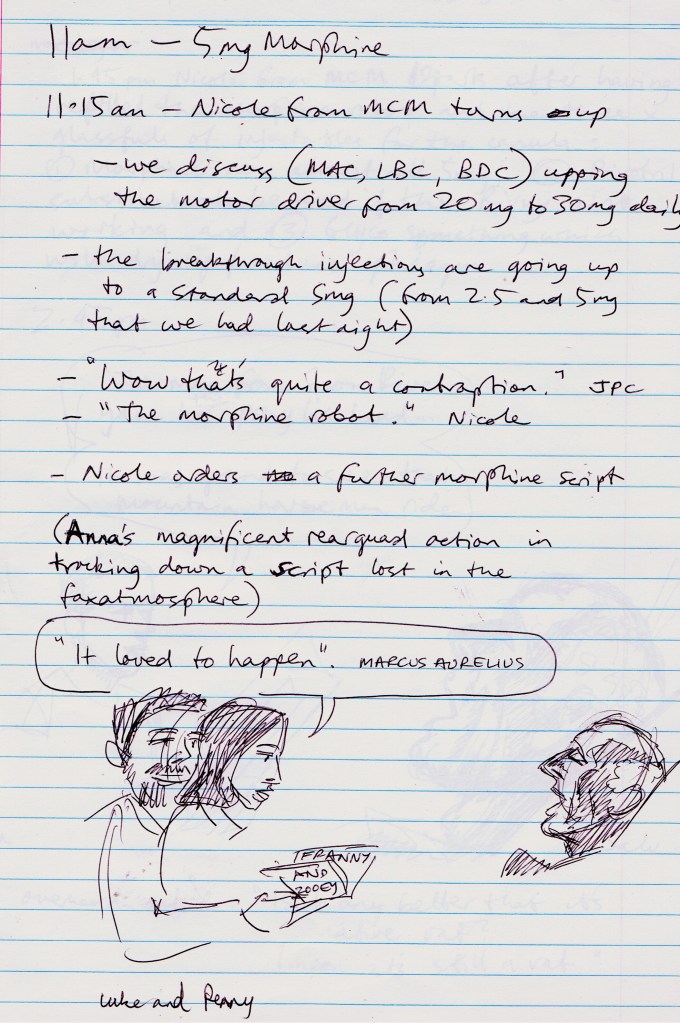 11am – 5mg Morphine
11.15am – Nicole from MCM turns up
– we discuss (MAC, LBC, BDC) upping
the motor driver from 20mg to 30mg daily
– the breakthrough injections are going up
to a standard 5mg (from 2.5 and 5mg
that we had last night)
– "Wow that's quite a contraption." JPC
– "the morphine robot." Nicole
– Nicole orders a further morphine script
(Anna's magnificent rearguad action in
tracking down a script lost in the
faxatmosphere)
"It loved to happen". MARCUS AURELIUS
FRANNY
AND
ZOOEY
Luke and Penny